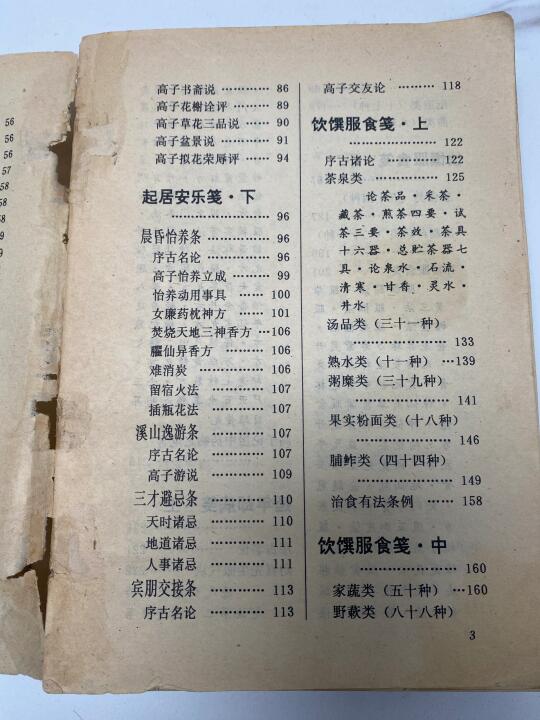 56
56
56
57
58
58
58
59
59
高子书斋说 ………… 86
高子花榭诠评 ……… 89
高子草花三品说 …… 90
高子盆景说 ………… 91
高子拟花荣辱评 …… 94
起居安乐笺·下
…………………… 96
晨昏怡养条 ………… 96
序古名论 ………… 96
高子怡养立成 …… 99
怡养动用事具 …… 100
女廉药枕神方 …… 101
焚烧天地三神香方 …106
臞仙异香方 ……… 106
难消炭 …………… 106
留宿火法 ………… 107
插瓶花法 ………… 107
溪山逸游条 ………… 107
序古名论 ………… 107
高子游说 ………… 109
三才避忌条 ………… 110
天时诸忌 ………… 110
地道诸忌 ………… 111
人事诸忌 ………… 111
宾朋交接条 ………… 113
序古名论 ………… 113
高子交友论 ……… 118
饮馔服食笺·上
………………… 122
序古诸论 ………… 122
茶泉类 …………… 125
论茶品·采茶·
藏茶·煎茶四要·试
茶三要·茶效·茶具
十六器·总贮茶器七
具·论泉水·石流·
清寒·甘香·灵水·
井水
汤品类（三十一种）
………………… 133
熟水类（十一种）…139
粥糜类（三十九种）
………………… 141
果实粉面类（十八种）
………………… 146
脯鲊类（四十四种）
………………… 149
治食有法条例 …… 158
饮馔服食笺·中
………………… 160
家蔬类（五十种）…160
野蔌类（八十八种）
3